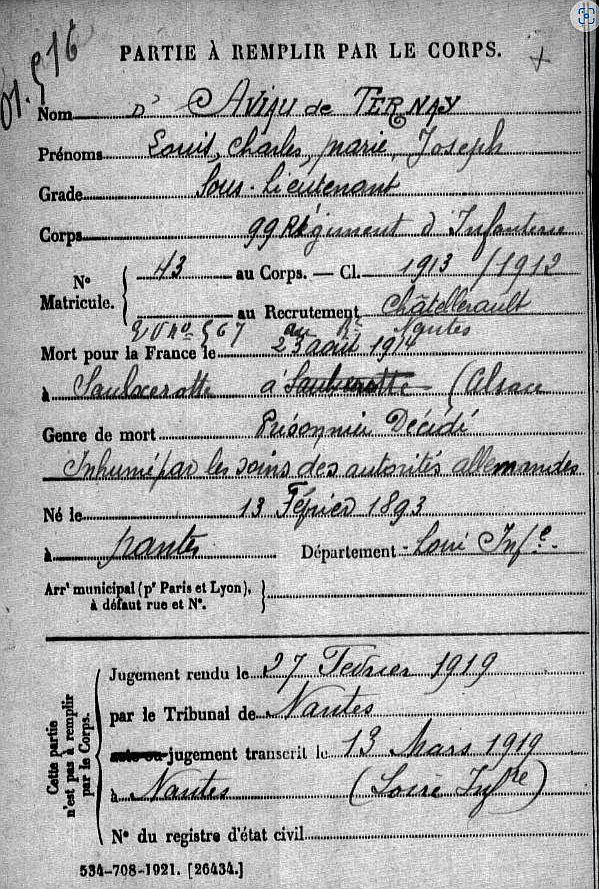 PARTIE À REMPLIR PAR LE CORPS.
Nom D' AVIAU de TERNAY
Prénoms Louis, Charles, Marie, Joseph
Grade Sous-Lieutenant
Corps 99 Régiment d'Infanterie
N° Matricule. 43 au Corps. — Cl. 1913 / 1912
au Recrutement Châtellerault
Nantes
Mort pour la France le 23 août 1914
à Saulxerotte à Saulxerotte (Alsace
Genre de mort Prisonnier Décédé
Inhumé par les soins des autorités allemandes
Né le 13 Février 1893
à Nantes Département Loire Infre
Arrt municipal (pr Paris et Lyon),
à défaut rue et N°.
Cette partie n'est pas à remplir par le Corps.
Jugement rendu le 27 Février 1919
par le Tribunal de Nantes
acte ou jugement transcrit le 13 Mars 1919
à Nantes (Loire Infre)
N° du registre d'état civil
534-708-1921. [26434.]